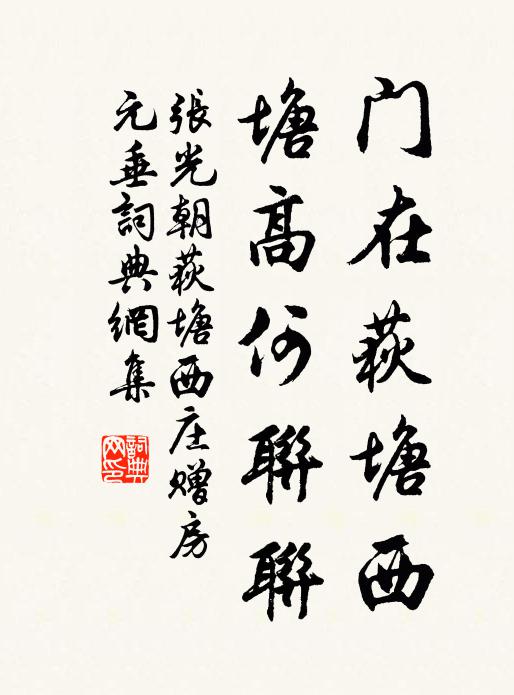 门在萩塘西
塘高何聯聯
張光朝萩塘西庄赠房
元垂詞典網集
詞典
网印